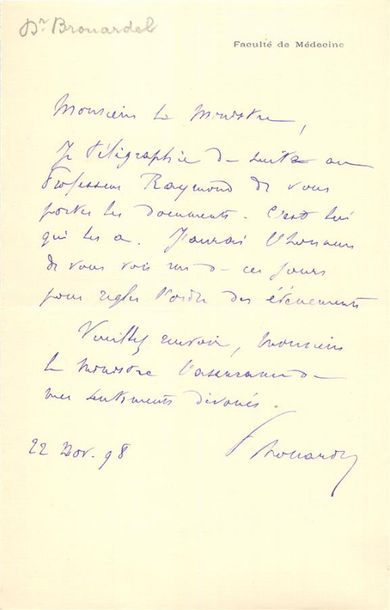 Dr Brouardel
Faculté de Médecine
Monsieur le Ministre,
Je télégraphie de suite au
Professeur Raymond de vous
porter les documents. C'est lui
qui les a. J'aurai l'honneur
de vous voir un de ces jours
pour régler l'ordre des événements
Veuillez recevoir, Monsieur
le Ministre l'assurance de
mes sentiments dévoués.
22 Nov. 98
Brouardel